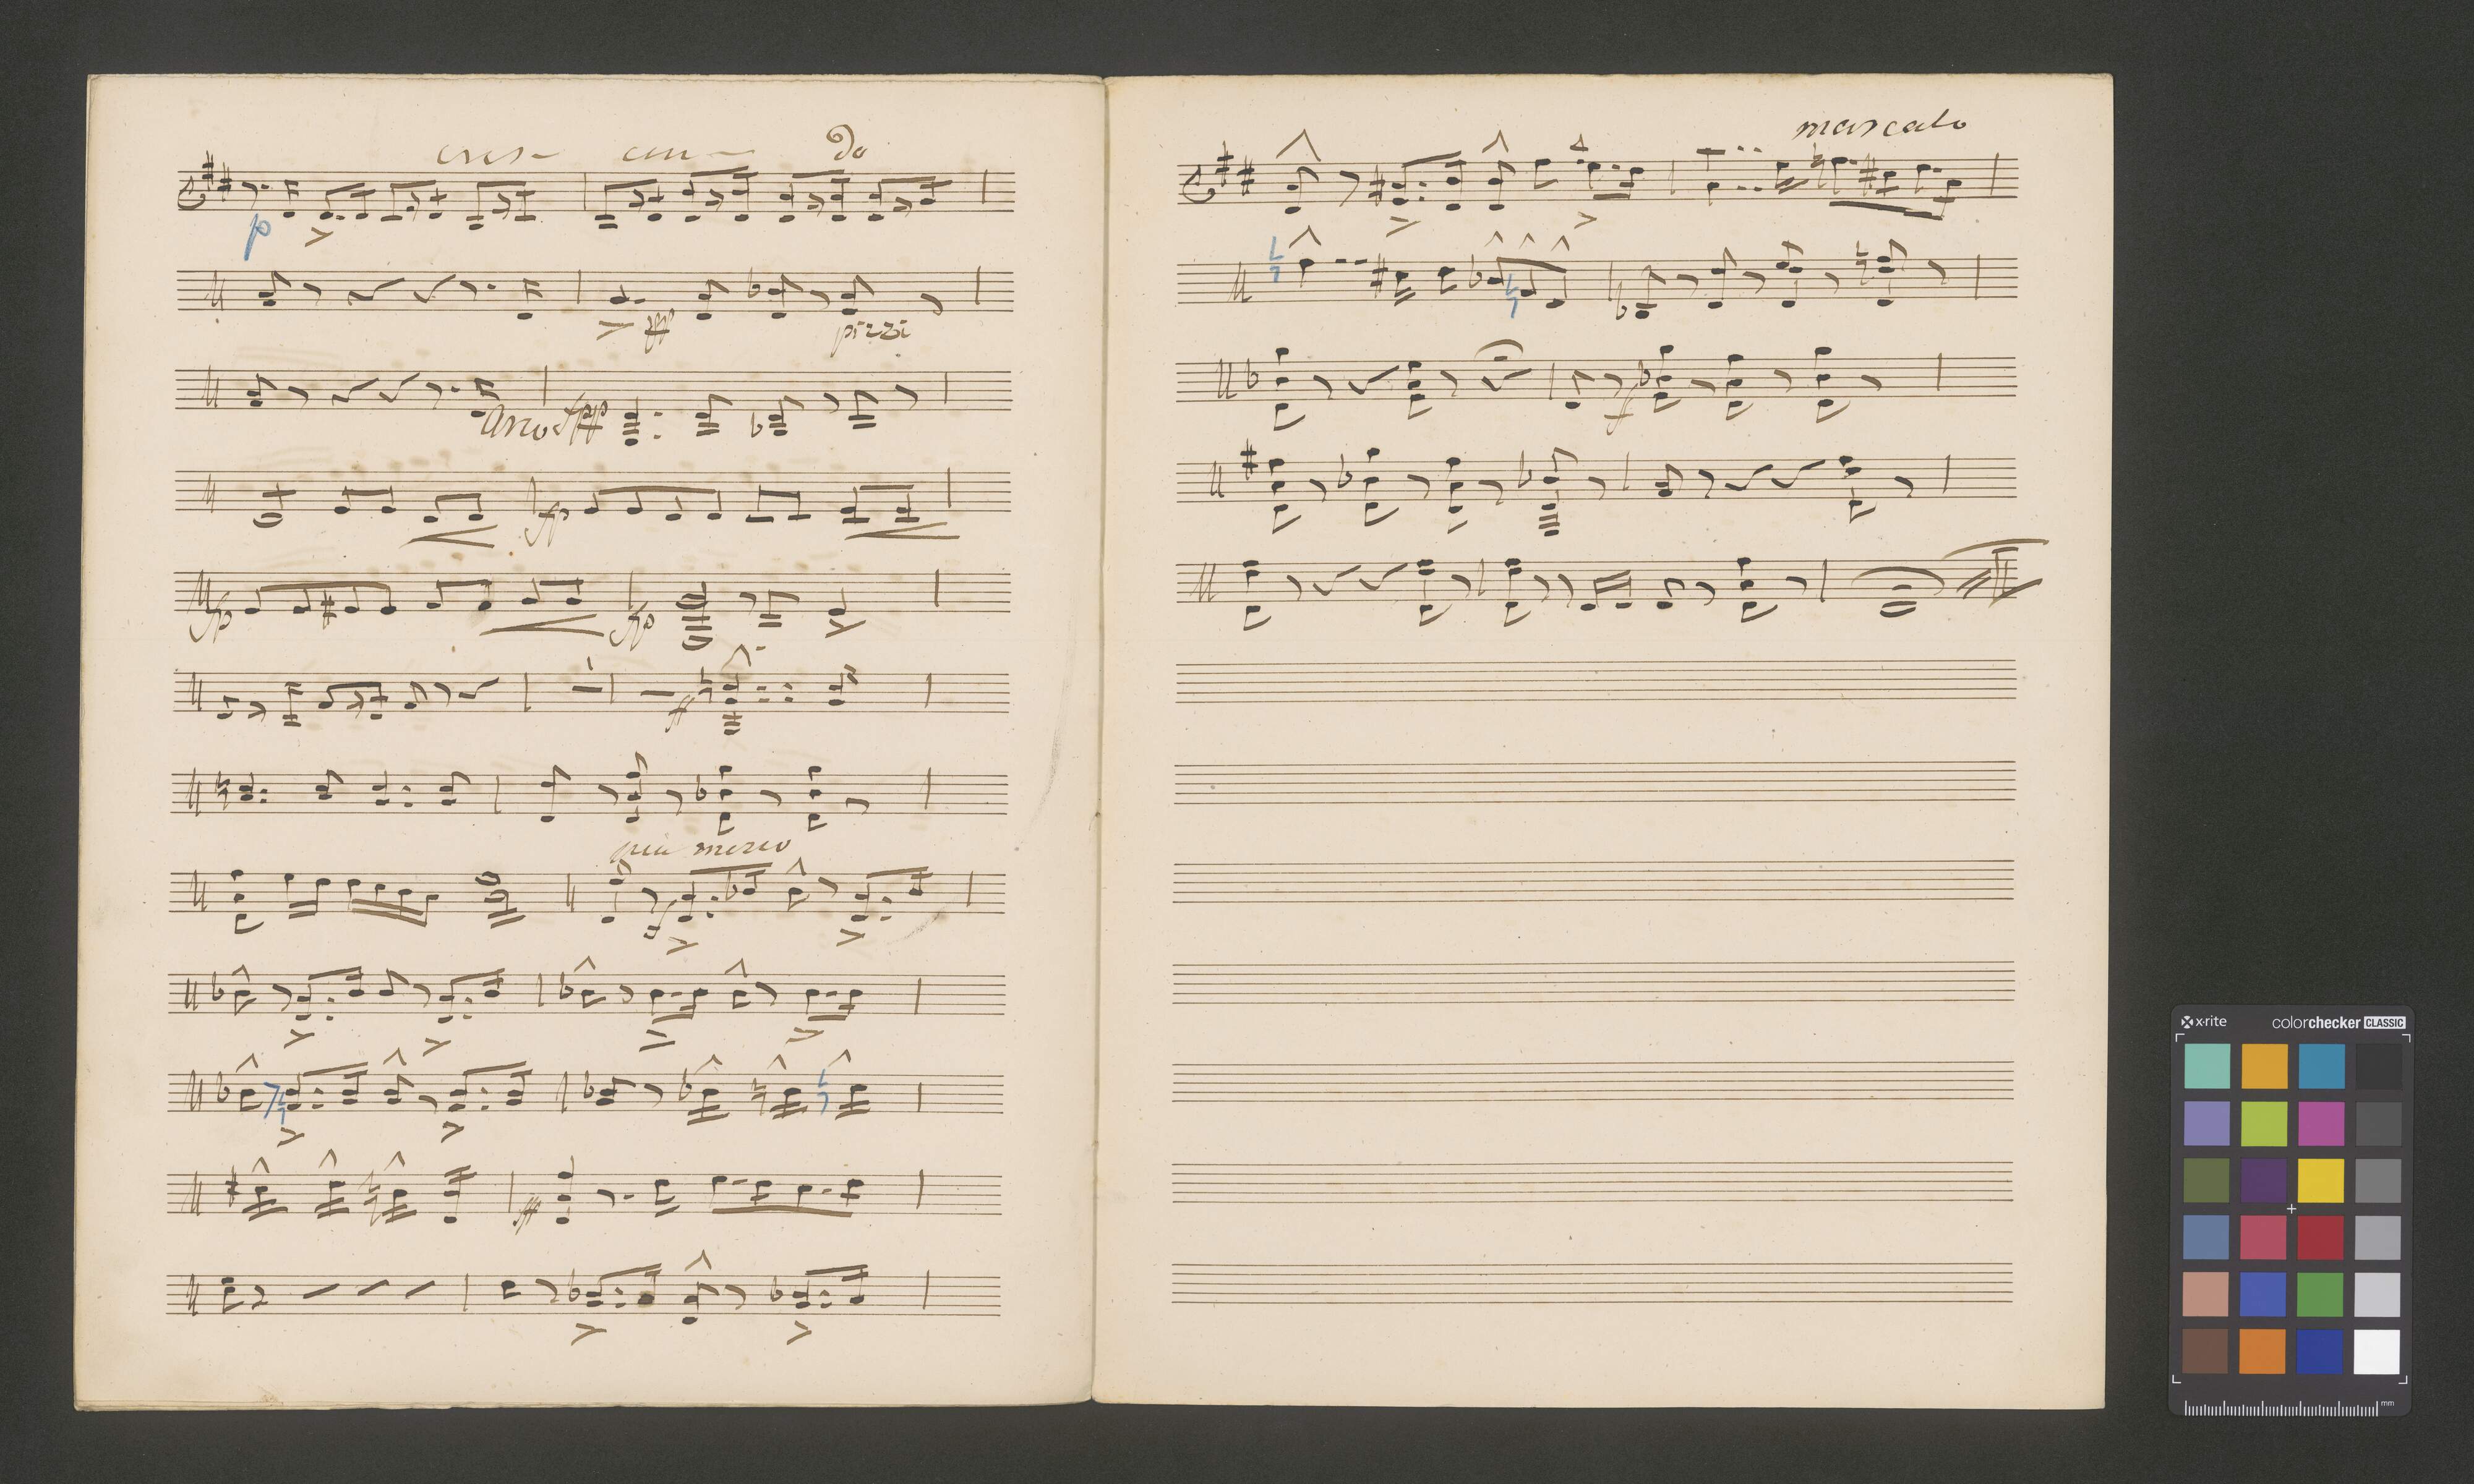 cres- cen- do
p
fpp
pizzi
Arco fpp
fp
fp fp
ff
piu meno
ff
marcato
ff
x-rite colorchecker CLASSIC
mm